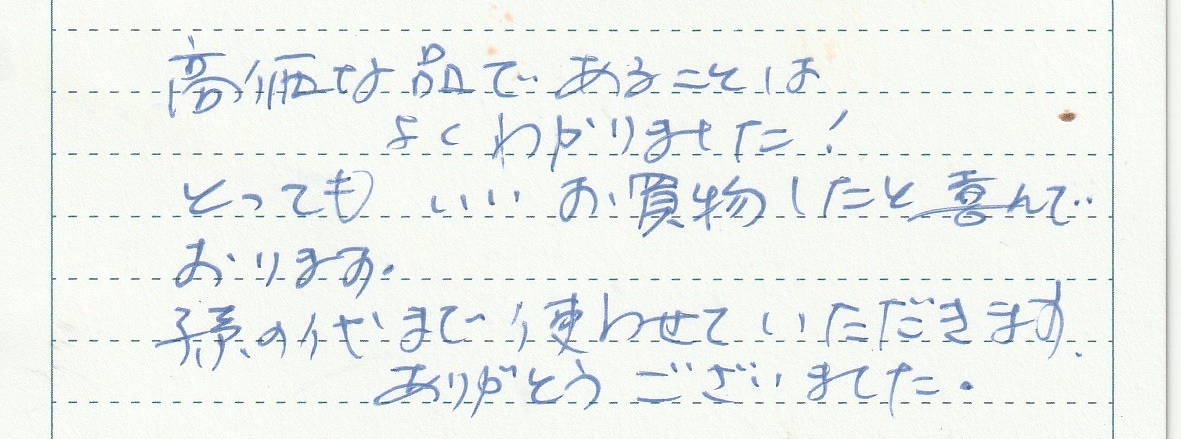 高価な品であることは
よくわかりました!
とっても いい お買物したと喜んで
おります.
孫の代まで使わせていただきます.
ありがとうございました.